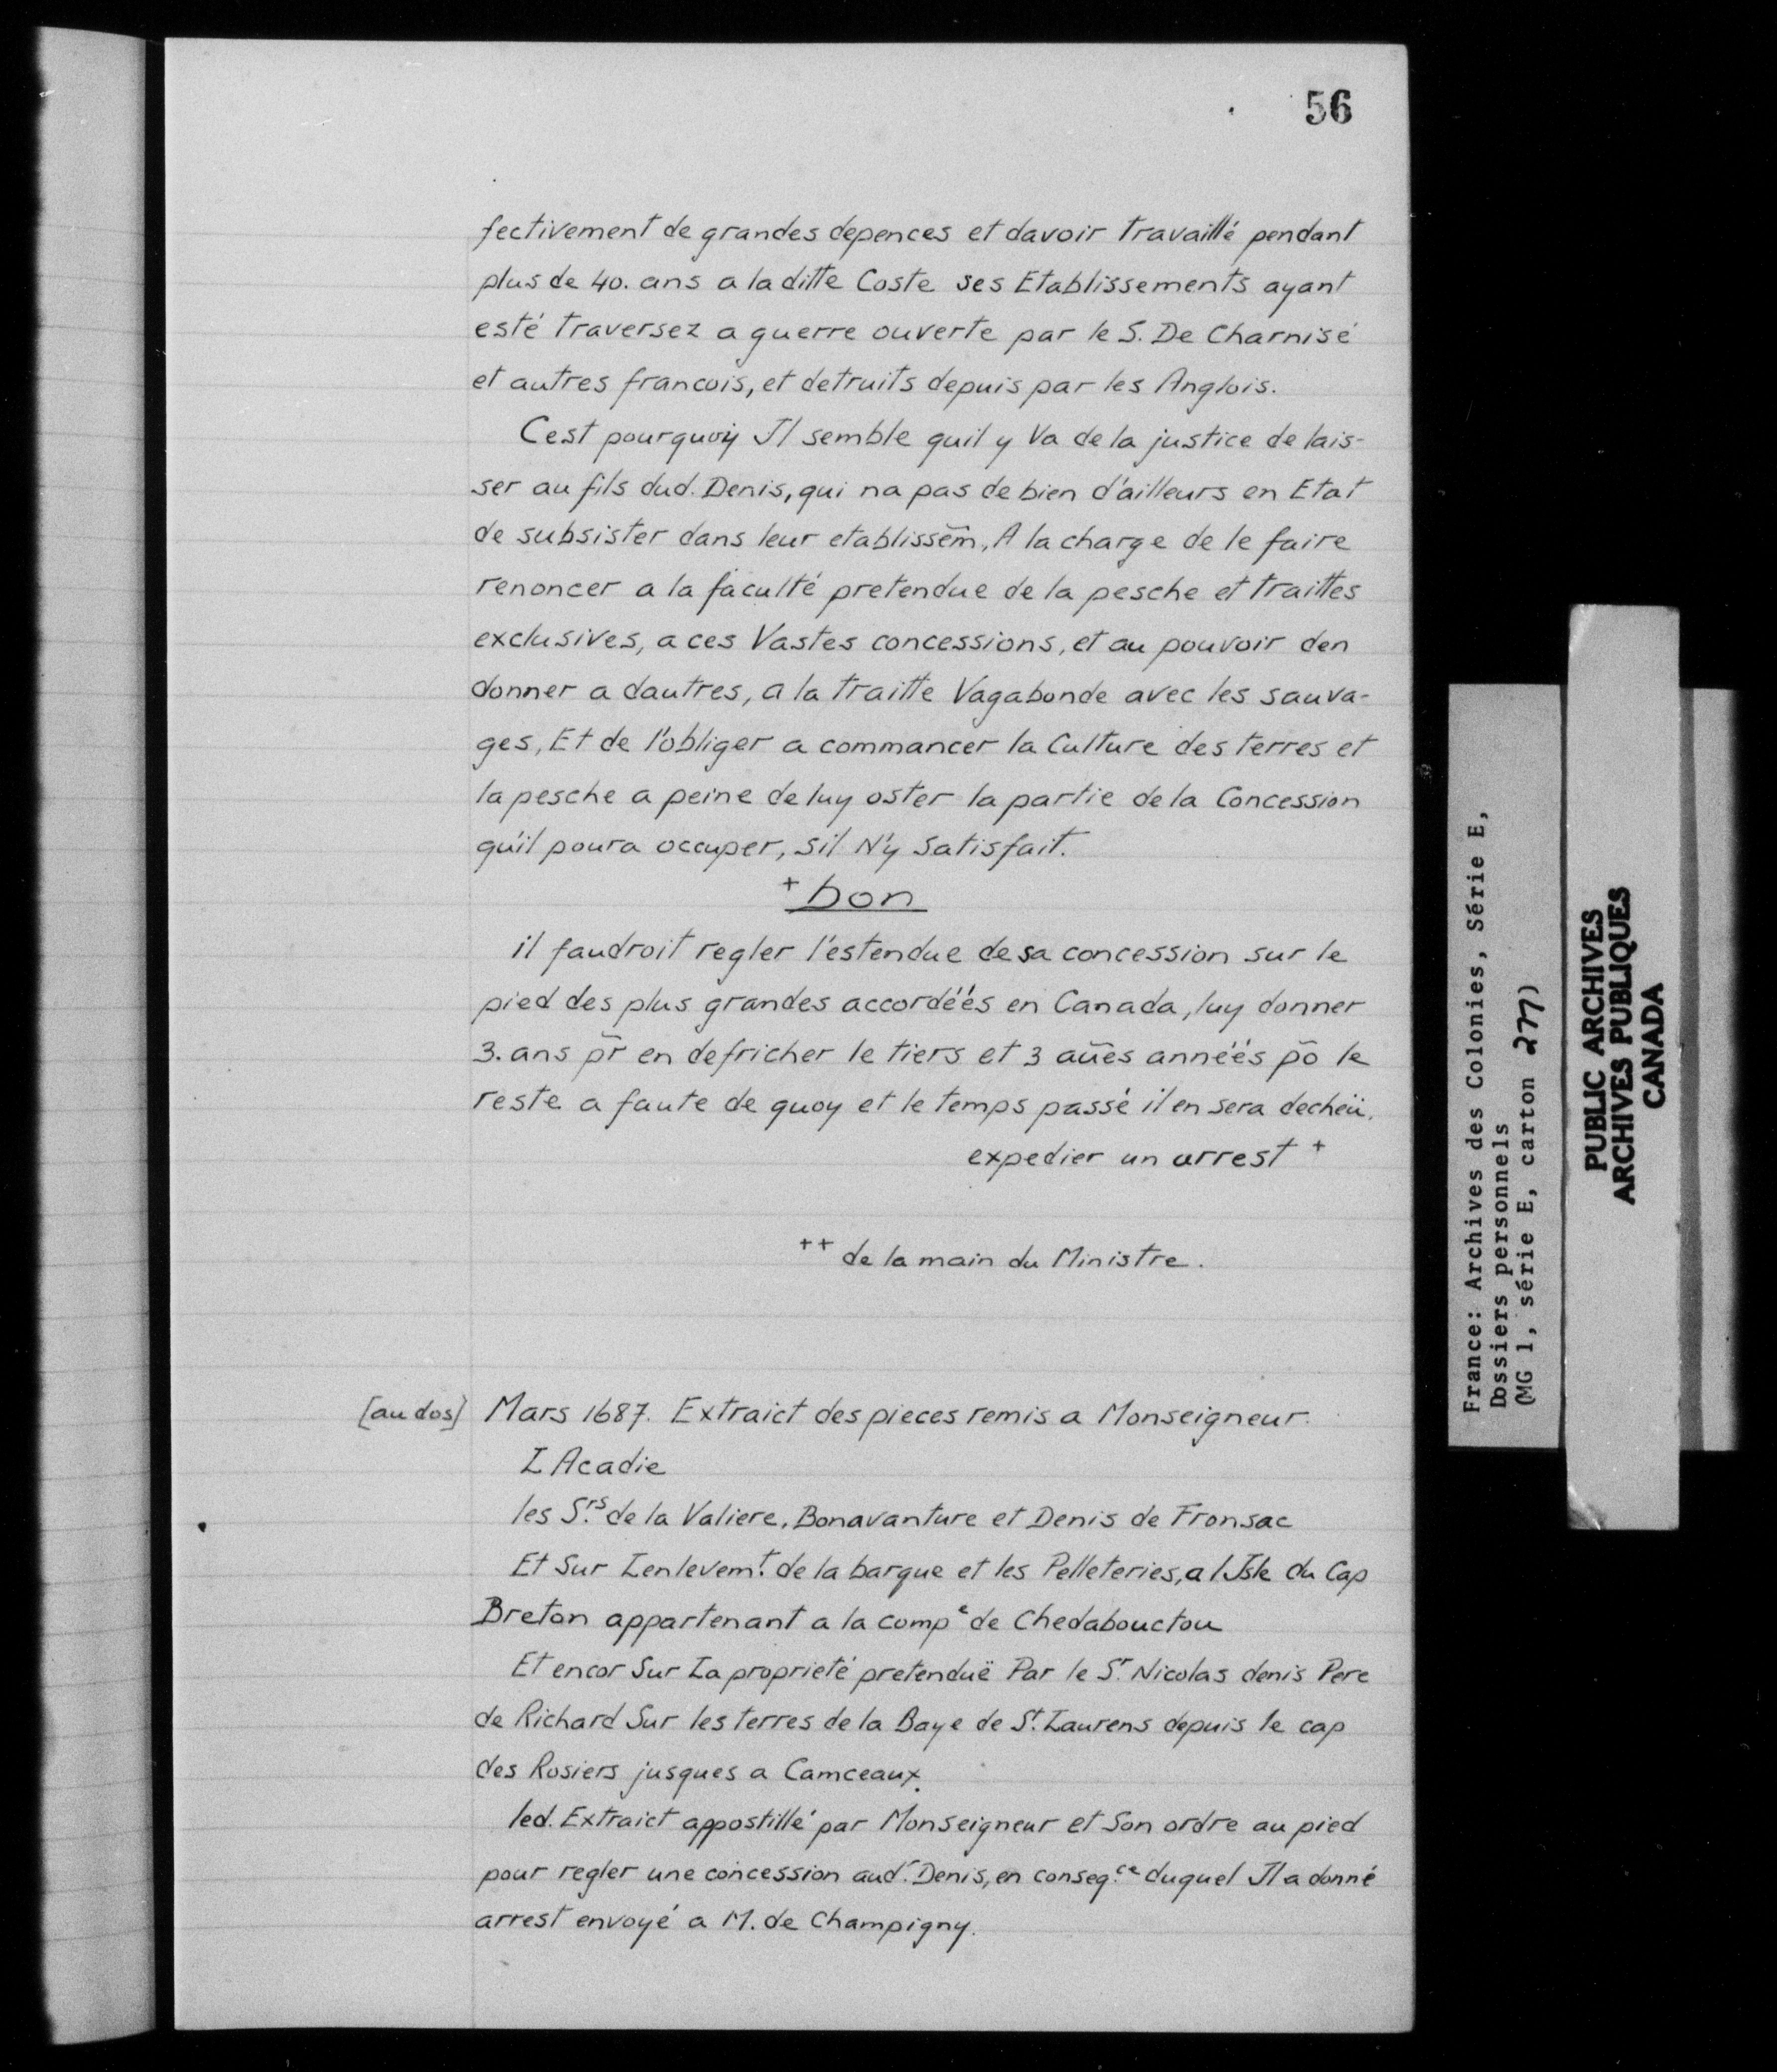 56
fectivement de grandes depences et davoir travaillé pendant
plus de 40. ans a la ditte Coste ses Etablissements ayant
esté traversez a guerre ouverte par le S. De Charnisé
et autres francois, et detruits depuis par les Anglois.
Cest pourquoÿ Il semble quil y Va de la justice de lais-
ser au fils dud. Denis, qui na pas de bien d'ailleurs en Etat
de subsister dans leur etablissem̃., A la charge de le faire
renoncer a la faculté pretendue de la pesche et traittes
exclusives, a ces Vastes concessions, et au pouvoir den
donner a dautres, a la traitte Vagabonde avec les sauva-
ges, Et de l'obliger a commancer la Culture des terres et
la pesche a peine de luy oster la partie de la Concession
qu'il poura occuper, sil N'y satisfait.
+ bon
il faudroit regler l'estendue de sa concession sur le
pied des plus grandes accordéés en Canada, luy donner
3. ans pr̃ en defricher le tiers et 3 aũes annéés põ le
reste a faute de quoy et le temps passé il en sera decheü.
expedier un arrest +
++ de la main du Ministre.
[au dos] Mars 1687. Extraict des pieces remis a Monseigneur.
L Acadie
les S.rs de la Valiere, Bonavanture et Denis de Fronsac
Et Sur Lenlevem.t de la barque et les Pelleteries, a l Isle du Cap
Breton appartenant a la compe de Chedabouctou
Et encor Sur La proprieté pretenduë Par le Sr. Nicolas denis Pere
de Richard Sur les terres de la Baye de St. Laurens depuis le cap
des Rosiers jusques a Camceaux.
led. Extraict appostillé par Monseigneur et Son ordre au pied
pour regler une concession aud.r Denis, en conseq.ce duquel Il a donné
arrest envoyé a M. de Champigny.
France: Archives des Colonies, Série E,
Dossiers personnels
(MG 1, série E, carton 277)
PUBLIC ARCHIVES
ARCHIVES PUBLIQUES
CANADA